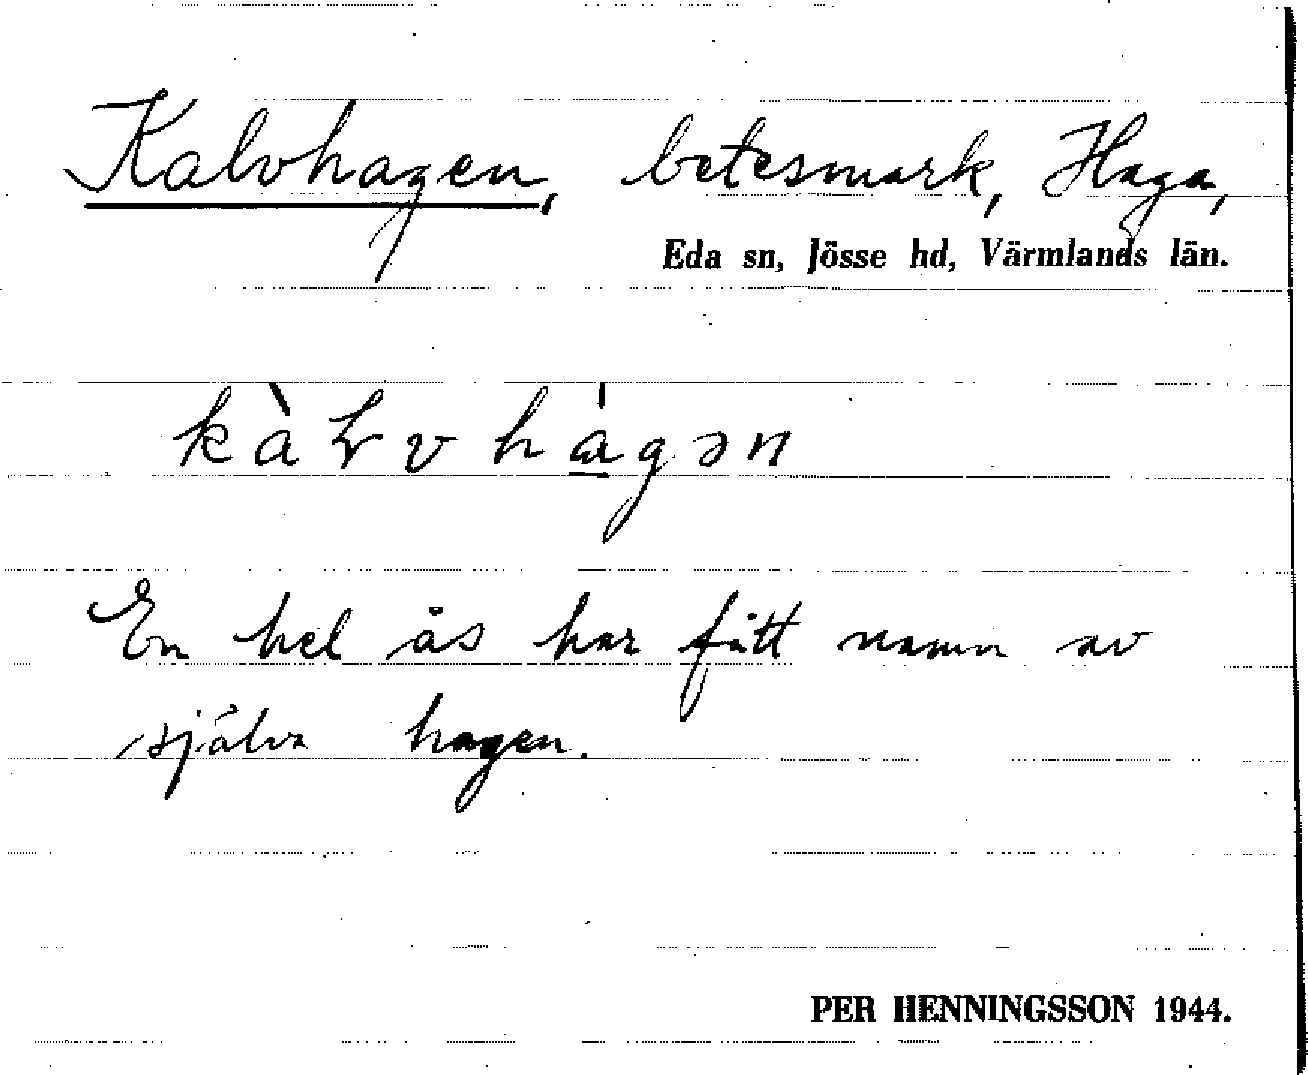 Kalvhagen, betesmark, Haga,
Eda sn, Jösse hd, Värmlands län.
kàɫvhágən
En hel ås har fått namn av
själva hagen.
PER HENNINGSSON 1944.